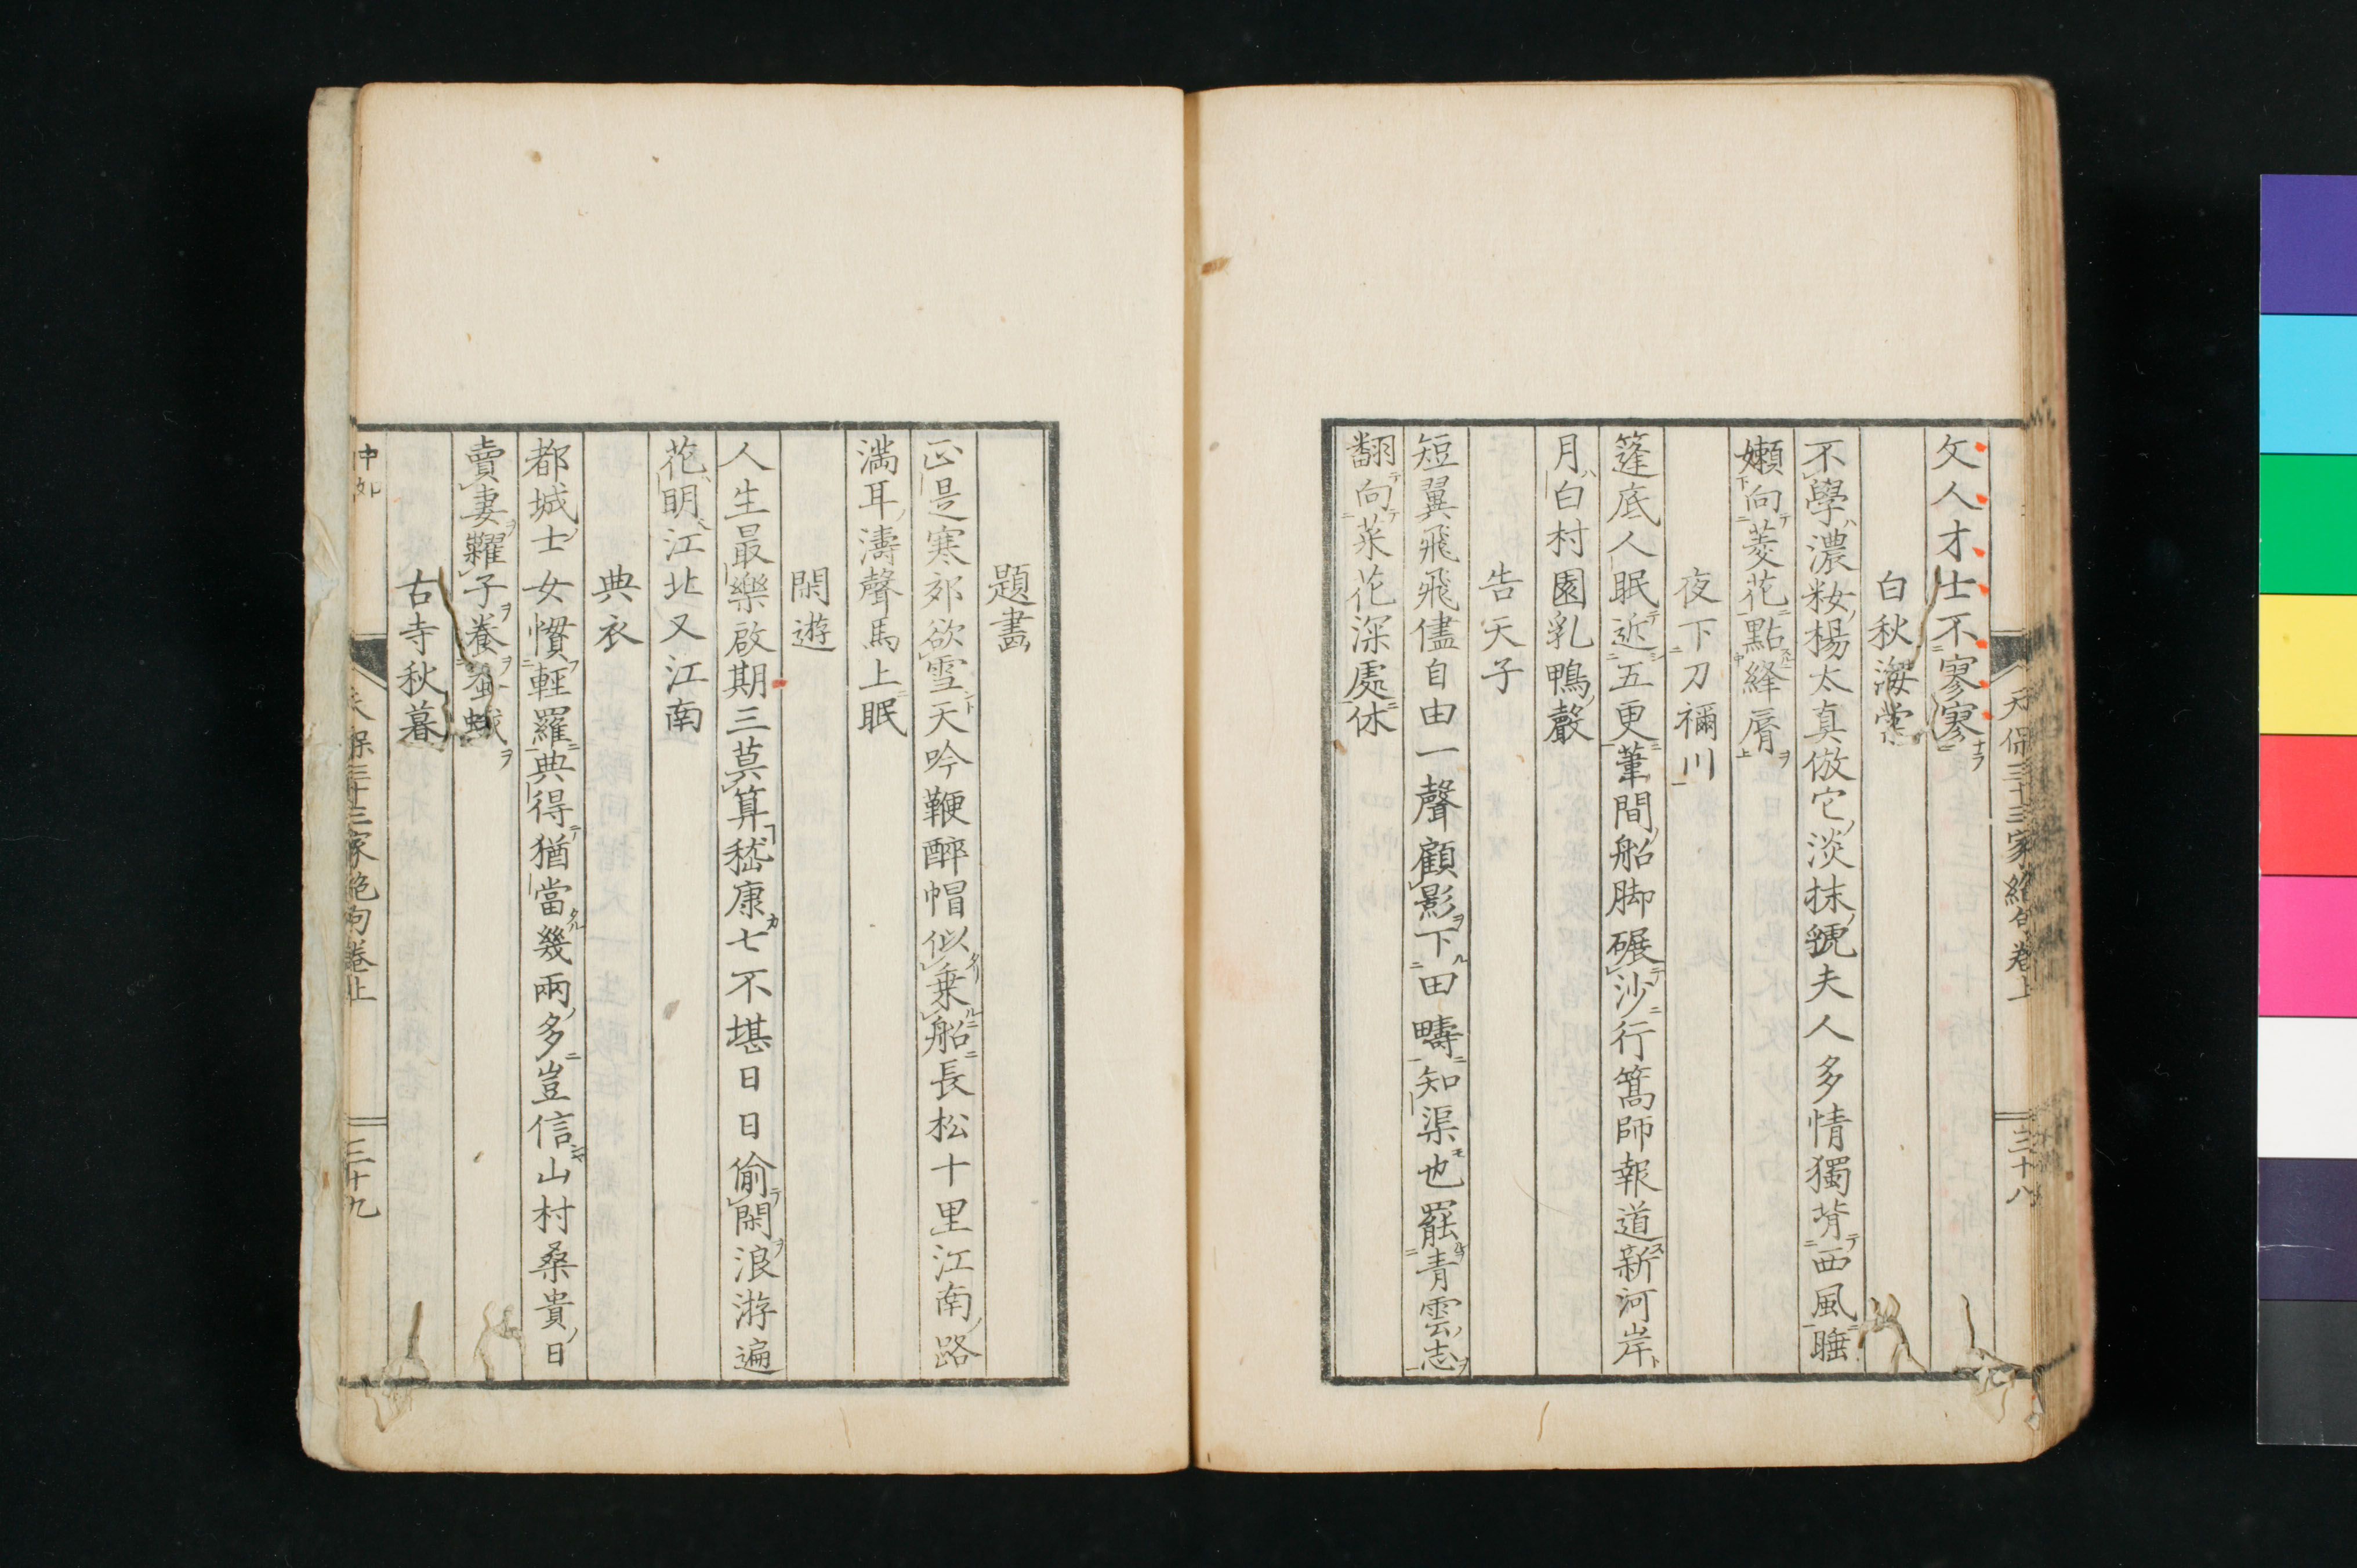 文人才士不寥寥
白秋海棠
不學濃粧楊太真倣它淡抹虢夫人多情獨背西風睡
嬾向菱花點絳脣
夜下刀禰川
篷底人眠近五更葦間船脚碾沙行篙師報道新河岸
月白村園乳鴨聲
告天子
短翼飛飛儘自由一聲顧影下田疇知渠也罷青雲志
翻向菜花深處休
天保三十三家絶句卷上
三十八
題畫
正是寒郊欲雪天吟鞭醉帽似乗船長松十里江南路
満耳濤聲馬上眠
閑遊
人生最樂啟期三莫算嵇康七不堪日日偷閑浪游遍
花明江北又江南
典衣
都城士女慣輕羅典得猶當幾兩多豈信山村桑貴日
賣妻糶子養蚕蛾
古寺秋暮
天保三十三家絶句卷上
三十九